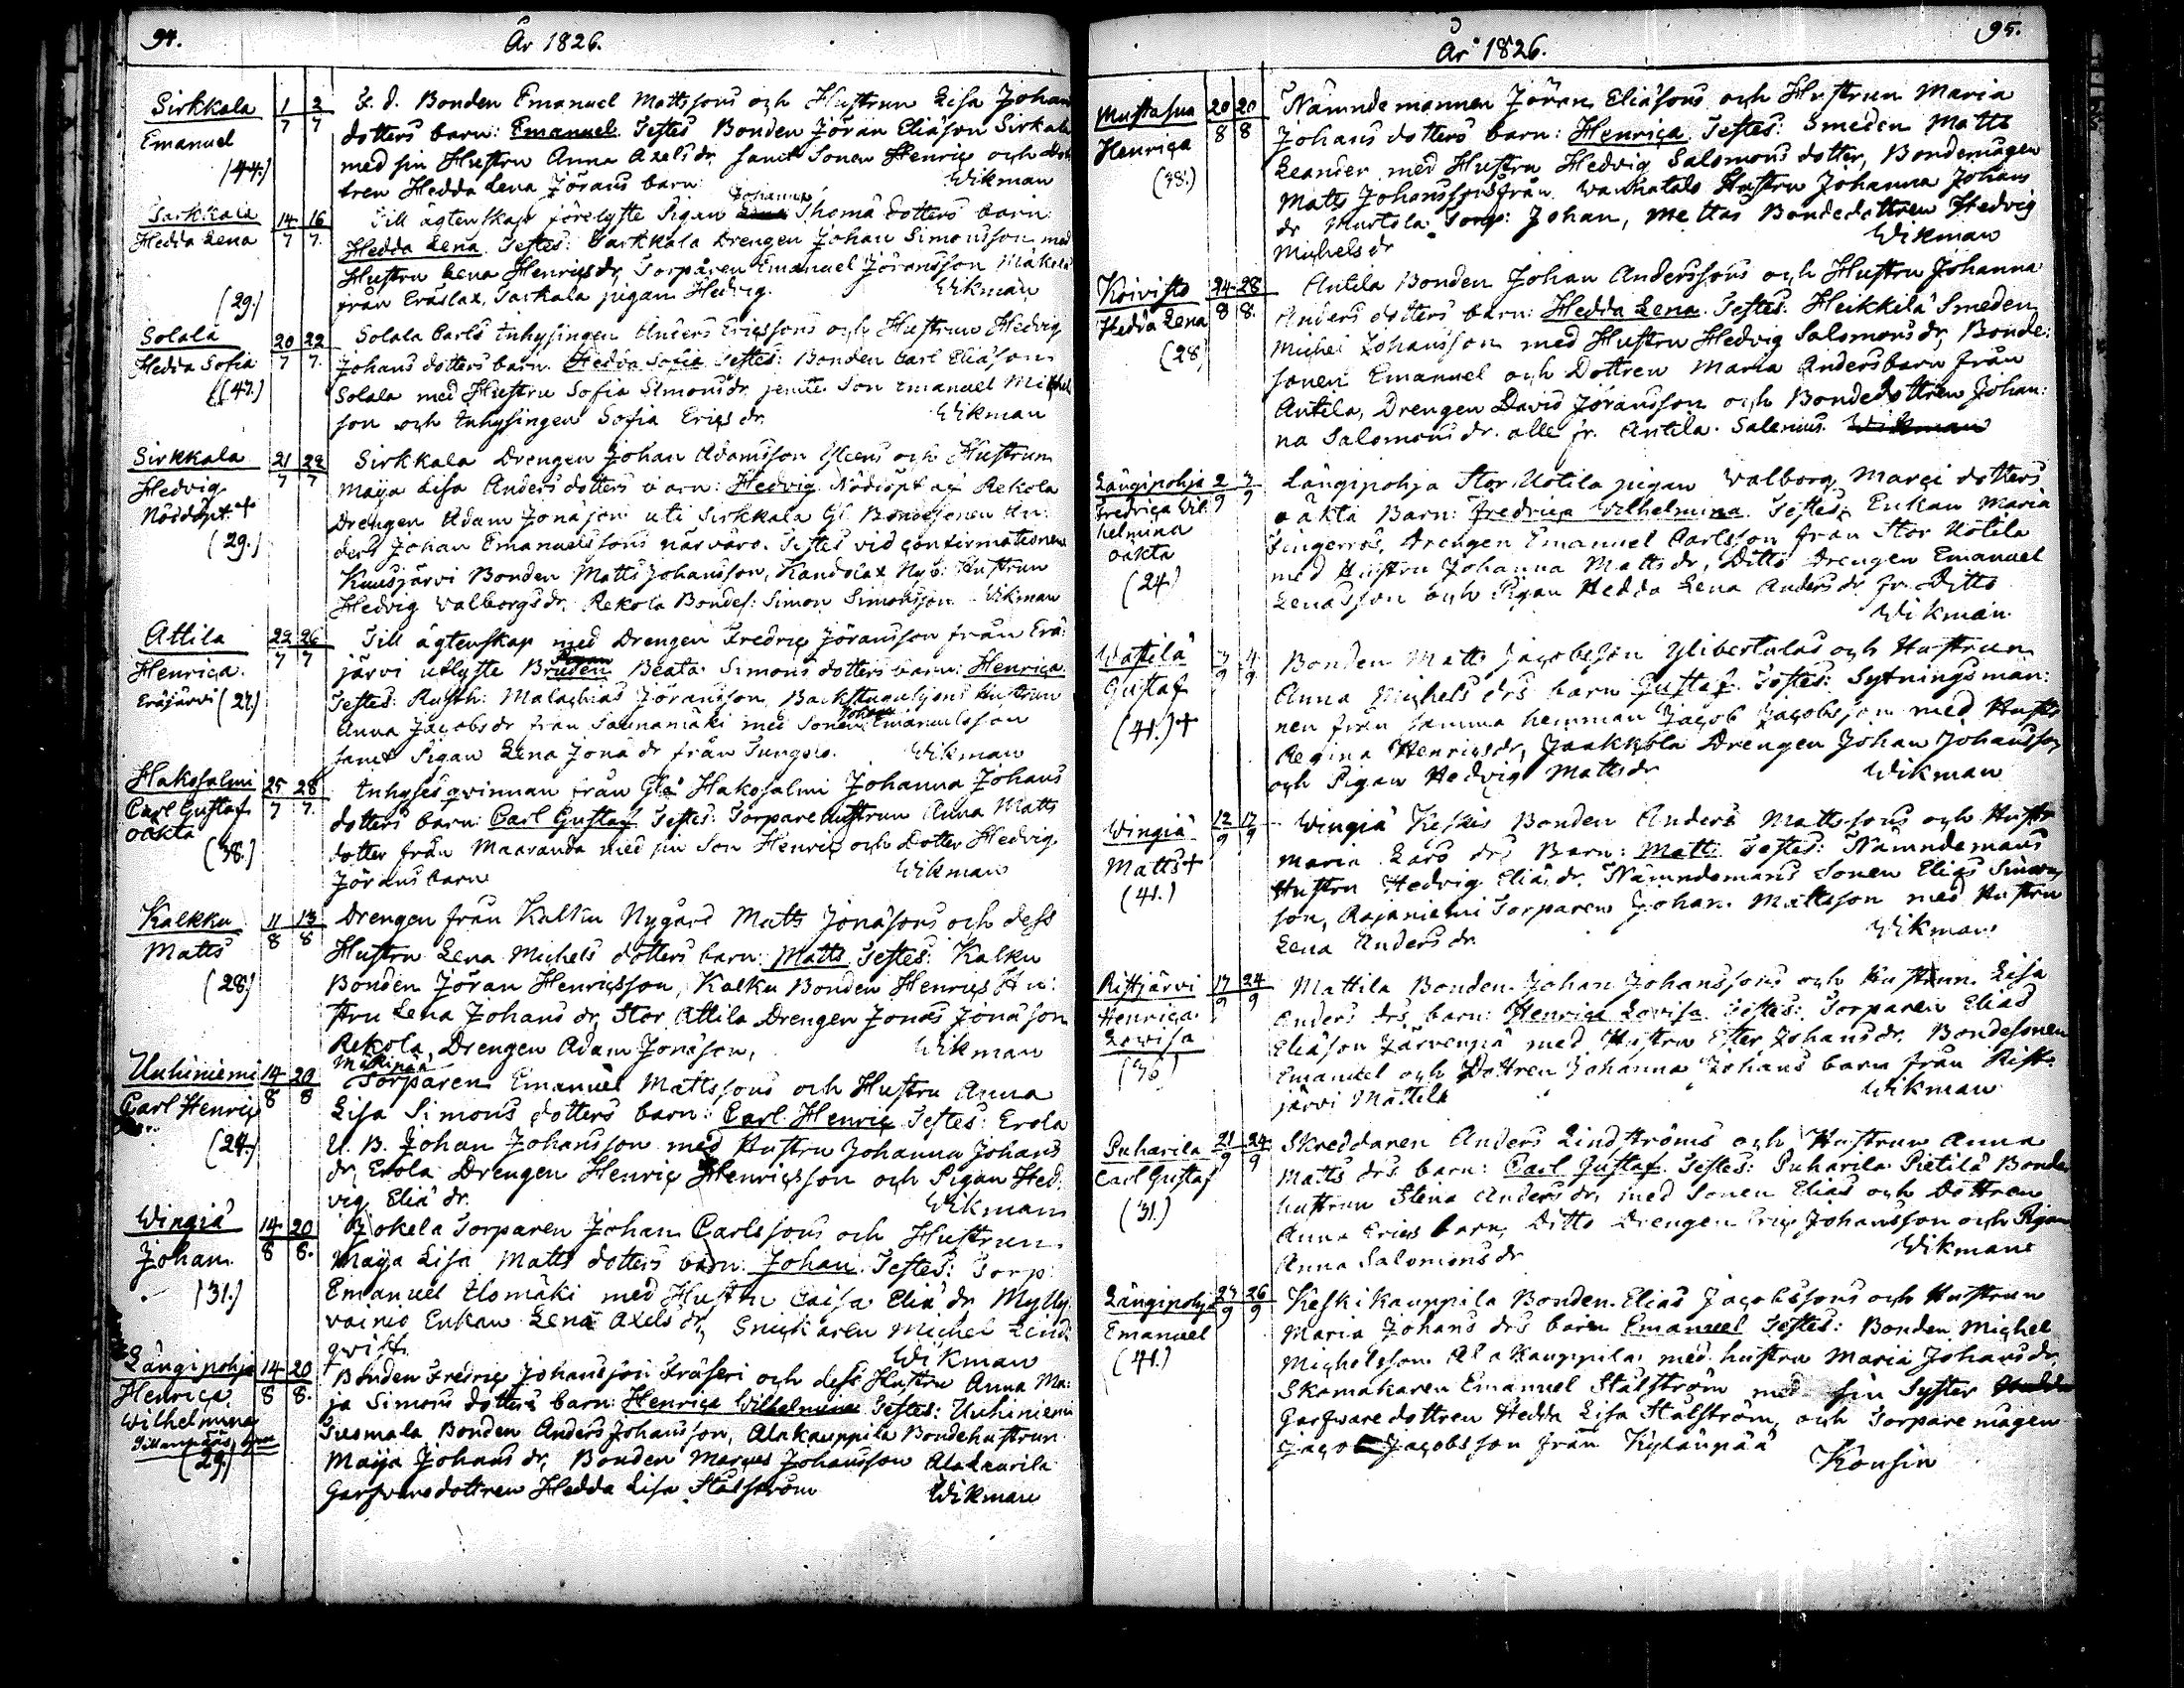 94.
År 1826.
Sirkkala 1/7 2/7 F. d. Bonden Emanuel Mattssons och Hustrun Lisa Johans
Emanuel dotters barn: Emanuel Testes Bonden Jöran Eliäson Sirkala
(44.) med sin Hustru Anna Axels dr samt Sonen Henric och dot
tren Hedda Lena Jörans barn. Wikman
Sarkkala 14/7 16/7 Till ägtenskap förelyfte Pigan Johanna Thomä dotters barn:
Hedda Lena Hedda Lena. Testes: Sarkkala Drengen Johan Simonsson med
Hustru Lena Henricsdr, Torparen Emanuel Jöransson Mäkelä
(29.) från Eräslax, Sarkala pigan Hedvig. Wikman
Solala 20/7 22/7 Solala Carls Inhysingen Anders Ericssons och Hustrun Hedvig
Hedda Sofia Johans dotters barn. Hedda Sofia Testes: Bonden Carl Eliäson
(47.) Solala med Hustru Sofia Simons dr jemte Son Emanuel Michel
son och Inhysingen Sofia Erics dr. Wikman
Sirkkala 21/7 22/7 Sirkkala Drengen Johan Adamsson och Hustrun
Hedvig Maija Lisa Anders dotters barn: Hedvig. Nöddöpt af Rekola
Nöddöpt. + Drengen Adam Jonäson uti Sirkkala Gl. Bondesonen An:
(29.) ders Johan Emanuelssons närvaro. Testes vid confirmationen
Kuusjärvi Bonden Matts Johansson, Kandolax Nyb: Hustrun
Hedvig Valborgs dr, Rekola Bondes: Simon Simonsson. Wikman
Attila 22/7 26/7 Till ägtenskap med Drengen Fredric Jöransson från Erä:
Henrica. järvi utlyfte Pigan Beata Simons dotters barn: Henrica.
Eräjärvi (27.) Testes: Rusth: Malachias Jöransson, Backstugusjons Hustrun
Anna Jacobs dr från Saunamäki med Sonen Johan Emanuelsson
samt Pigan Lena Jona dr från Wikman
Hakosalmi 25/7 28/7 Inhyses qvinnan från Hakosalmi Johanna Johans
Carl Gustaf dotters barn: Carl Gustaf. Testes: Torpare Hustrun Anna Matts
oäkta dotter från Maaranda med sin Son Henric och Dotter Hedvig
(38.) Jörans barn Wikman
Kalkku 11/8 13/8 Drengen från Kalku Nygård Matts Jonäsons och dess
Matts Hustru Lena Michels dotters barn: Matts. Testes: Kalku
(28.) Bonden Jöran Henricsson, Kalku Bonden Henrics Hu:
stru Lena Johans dr, Stor Attila Drengen Jonas Jonäson
Rekola, Drengen Adam Jonäson, Wikman
Uuhiniemi 14/8 20/8 Torparen Emanuel Mattssons och Hustru Anna
Carl Henric Lisa Simons dotters barn: Carl Henric Testes: Erola
(24.) U. B. Johan Johansson med Hustru Johanna Johans
dr, Erola Drengen Henric Henricsson och Pigan Hed:
vig Eliä dr. Wikman
Wingiä 14/8 20/8 Jokela Torparen Johan Carlssons och Hustrun
Johan Maija Lisa Matts dotters barn: Johan. Testes: Torp:
(31.) Emanuel Uomäki med Hustru Caisa Eliä dr Mylly
vainio Enkan Lena Axels dr, Snickaren Michel Lind
qvist. Wikman
Längipohja 14/8 20/8 Bonden Fredric Johansson och dess Hustru Anna Ma:
Henrica ja Simons dotters barn: Henrica Wilhelmina Testes: Uuhiniemi
Wilhelmina Tuomala Bonden Anders Johansson, Alakauppila Bondehustrun
(29) Maija Johans dr, Bonden Marcus Johansson
dottren Hedda Lisa Stålström Wikman
95.
År 1826.
Mustasua 20/8 20/8 Nämndemannen Jöran Eliäsons och Hustrun Maria
Henrica Johans dotters barn: Henrica. Testes: Smeden Matts
(48.) Leander med Hustru Hedvig Salomons dotter, Bondemågen
Matts Johansson från Hustru Johanna Johans
dr Martola. Torp: Johan, Bondedottren Hedvig
Michels dr Wikman
Koivisto 24/8 28/8 Antila Bonden Johan Anderssons och Hustru Johanna
Hedda Lena Anders dotters barn: Hedda Lena. Testes: Heikkilä Smeden
(28) Michel Johansson med Hustru Hedvig Salomons dr, Bonde:
sonen Emanuel och Dottren Maria Andersbarn från
Antila, Drengen David Jöransson och Bondedottren Johan:
na Salomons dr. alle fr. Antila. Salenius
Längipohja 2/9 3/9 Längipohja Stor Uotila pigan Valborg Marci dotters
Fredrica Wil oäkta Barn: Fredrica Wilhelmina. Testes: Enkan Maria
helmina Fingerroos, Drengen Emanuel Carlsson från Stor Uotila
oäkta med Hustru Johanna Matts dr, Ditto Drengen Emanuel
(24.) Lenasson och Pigan Hedda Lena Anders dr fr. Ditto
Wikman
Wattila 3/9 4/9 Bonden Matts Jacobsson och Hustrun
Gustaf Anna Michels drs barn Gustaf. Testes: Sytningsman:
(41.) + nen från samma hemman Jacob Jacobsson med Hustr
Regina Henrics dr, Jaakkola Drengen Johan Johansson
och Pigan Hedvig Matts dr Wikman
Wingiä 12/9 17/9 Wingiä Keskis Bonden Anders Mattssons och Hustr
Matts + Maria Lars drs Barn: Matts Testes: Nämndemans
(41.) Hustru Hedvig Eliä dr. Nämndemans Sonen Elias Simon
son, Rajaniemi Torparen Johan Mattsson med Hustru
Lena Anders dr Wikman
Ristjärvi 17/9 24/9 Mattila Bonden Johan Johanssons och Hustrun Lisa
Henrica Anders drs barn: Henrica Lovisa. Testes: Torparen Elias
Lovisa Eliäson Järvenpä med Hustru Ester Johans dr. Bondesonen
(36) Emanuel och Dottren Johanna Johans barn från Rist:
järvi Mattila Wikman
Puharila 21/9 24/9 Skreddaren Anders Lindströms och Hustrun Anna
Carl Gustaf Matts drs barn: Carl Gustaf. Testes: Puharila Pietilä Bonde
(31.) hustrun Stina Anders dr, med Sonen Elias och Dottren
Anna Erics barn, Ditto Drengen Eric Johansson och Pigan
Anna Salomons dr Wikman
Längipohja 24/9 26/9 Keskikauppila Bonden Elias Jacobssons och Hustrun
Emanuel Maria Johans drs barn Emanuel Testes: Bonden Michel
(41.) Michelsson Alakauppila med hustru Maria Johans dr,
Skomakaren Emanuel Stålström med sin Syster
Garfware dottren Hedda Lisa Stålström, och Torpare mågen
Jacob Jacobsson från Kylänpää
Konsin